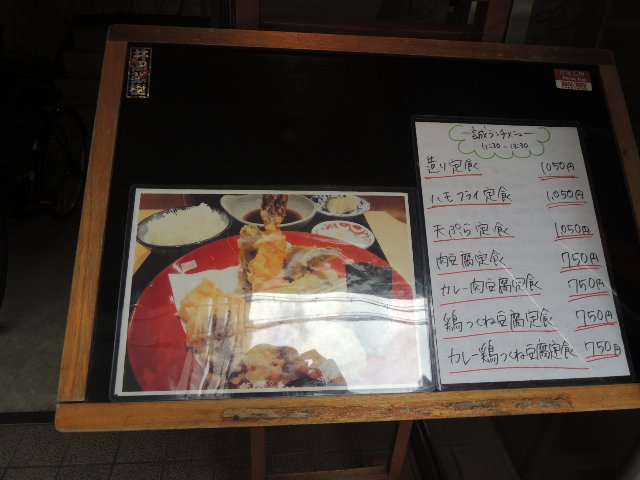 誠ランチメニュー
11:30~13:30
造り定食 1,050円
ハモフライ定食 1,050円
天ぷら定食 1,050円
肉豆腐定食 750円
カレー肉豆腐定食 750円
鶏つくね豆腐定食 750円
カレー鶏つくね豆腐定食 750円